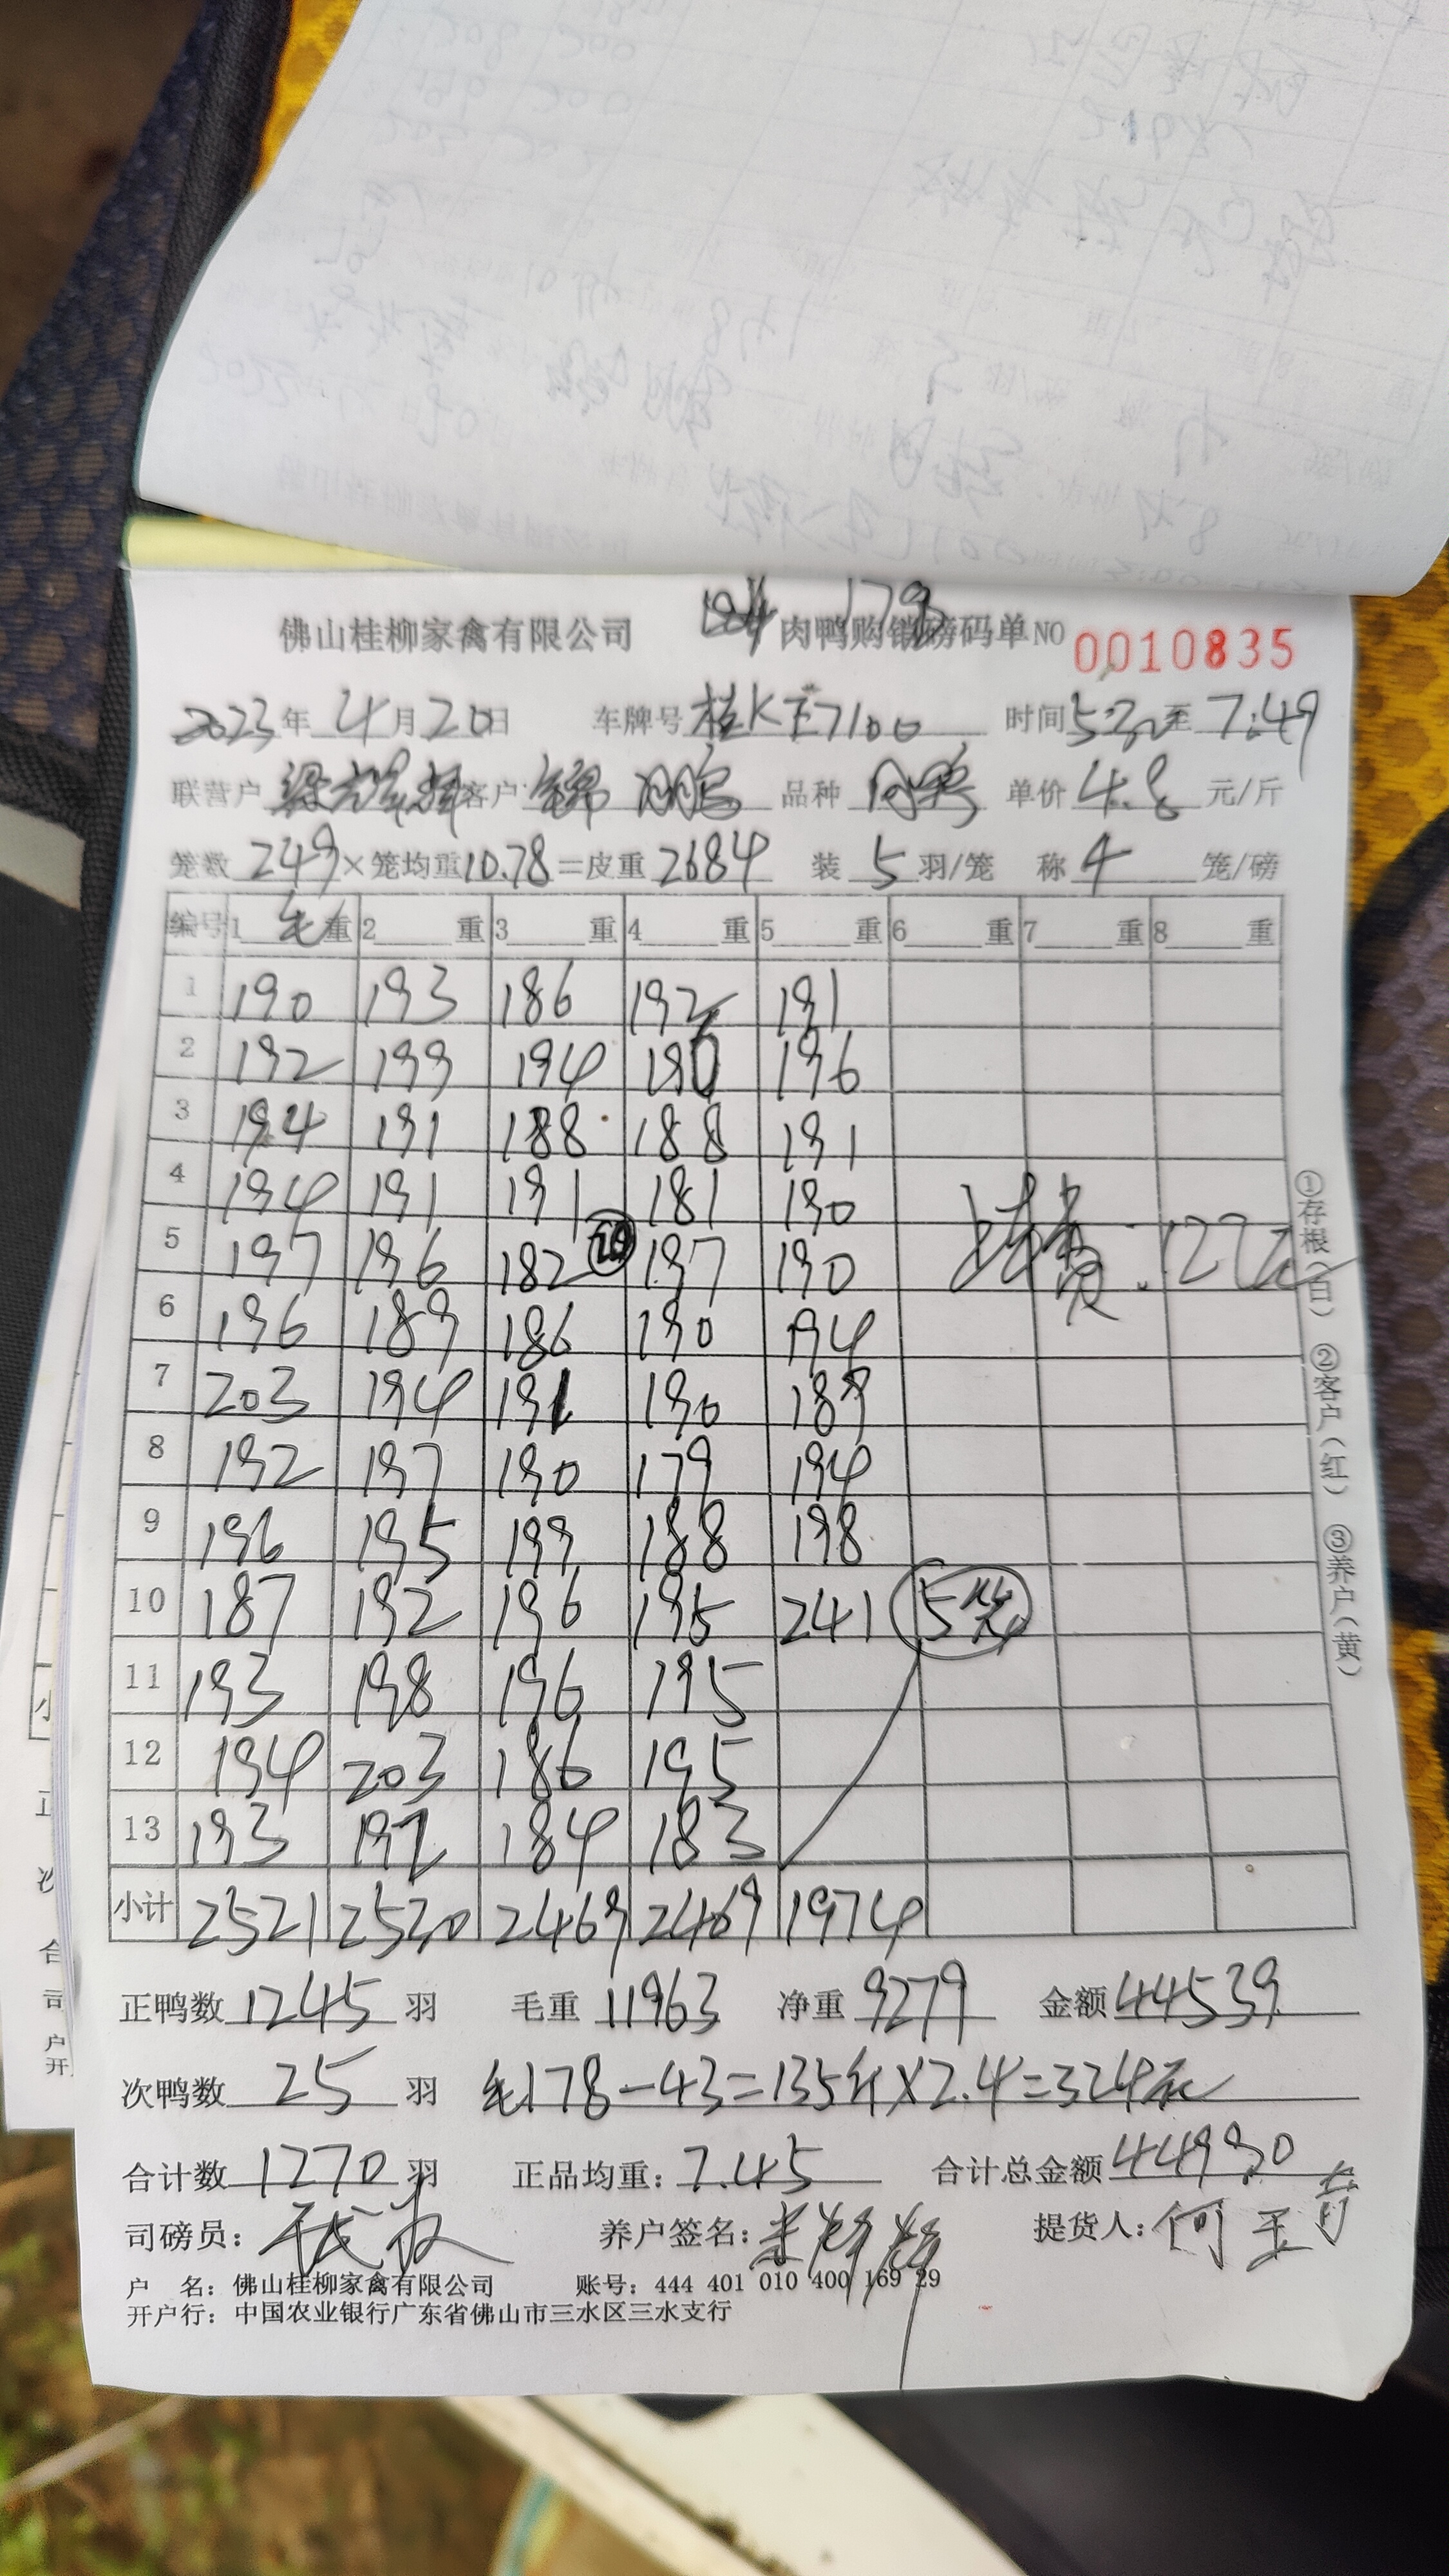 佛山桂柳家禽有限公司 178 肉鸭购销磅码单NO 0010835
2023年4月20日 车牌号桂KE7100 时间5:20至7:49
联营户 客户 锦 鹏 品种 单价4.8元/斤
笼数249×笼均重10.78=皮重2684 装5羽/笼 称4笼/磅
编号 1毛重 2重 3重 4重 5重 6重 7重 8重
1 190 193 186 192 191
2 192 199 194 190 196
3 194 191 188 188 191
4 194 191 191 181 190
5 197 196 182 197 190
6 196 189 186 190 194
7 203 194 191 190 189
8 192 197 190 179 194
9 196 195 199 188 198
10 187 192 196 195 241 5笼
11 193 198 196 195
12 194 203 186 195
13 193 192 184 183
小计 2521 2530 2469 2469 1974
费:127元
①存根(白) ②客户(红) ③养户(黄)
正鸭数1245羽 毛重11963 净重9279 金额44539
次鸭数25羽 毛178-43=135斤×2.4=324元
合计数1270羽 正品均重:7.45 合计总金额44990
司磅员: 养户签名: 提货人:何玉
户 名:佛山桂柳家禽有限公司 账号:444 401 010 400 169 29
开户行:中国农业银行广东省佛山市三水区三水支行